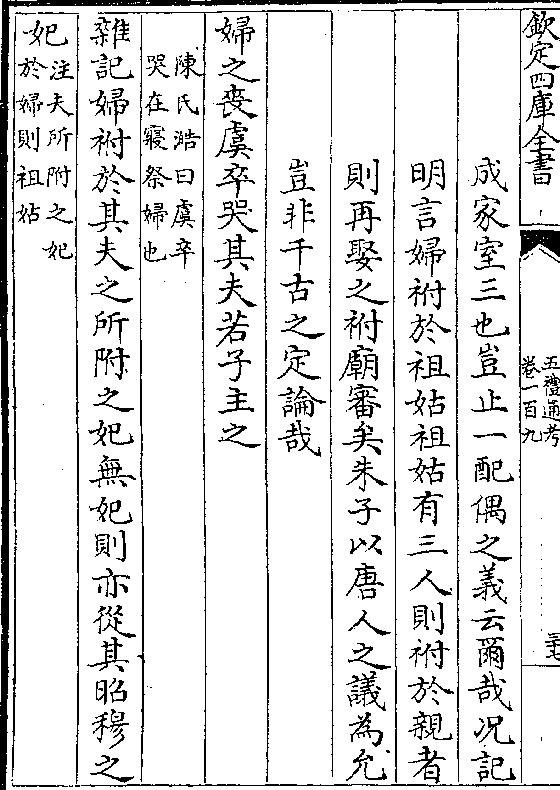 欽定四庫全書
五禮通考
卷一百九
三十七
成家室三也豈止一配偶之義云爾哉况記
明言婦祔於祖姑祖姑有三人則祔於親者
則再娶之祔廟審矣朱子以唐人之議為允
豈非千古之定論哉
婦之喪虞卒哭其夫若子主之
陳氏澔曰虞卒
哭在寢祭婦也
雜記婦祔於其夫之所附之妃無妃則亦從其昭穆之
妃
注夫所附之妃
於婦則祖姑